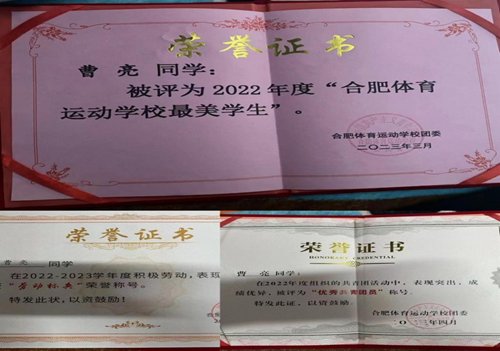 荣誉证书
曹 亮 同学：
被评为2022年度“合肥体育
运动学校最美学生”。
合肥体育运动学校团委
二〇二三年三月
荣誉证书
曹 亮 同学
在2022-2023学年度积极劳动，表现
荣誉称号。
特发此状，以资鼓励！
荣誉证书
HONORARY CREDENTIAL
曹 亮 同学：
在2022年度组织的共青团活动中，表现突出，成
绩优异，被评为“优秀共青团员”称号。
特发此证，以资鼓励
合肥体育运动学校团委
三年四月